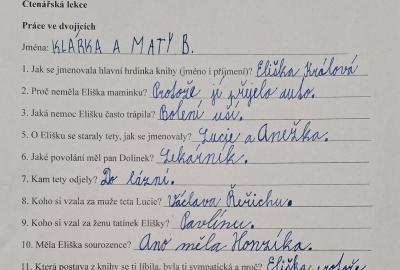 Čtenářská lekce
Práce ve dvojicích
Jména: KLÁRKA A MATÝ B.
1. Jak se jmenovala hlavní hrdinka knihy (jméno i příjmení)? Eliška Králová
2. Proč neměla Eliška maminku? Protože jí přejelo auto.
3. Jaká nemoc Elišku často trápila? Bolení uší.
5. O Elišku se staraly tety, jak se jmenovaly? Lucie a Anežka.
6. Jaké povolání měl pan Dolínek? Lekárník.
7. Kam tety odjely? Do lázní.
8. Koho si vzala za muže teta Lucie? Václava Řeřichu.
9. Koho si vzal za ženu tatínek Elišky? Pavlínu.
10. Měla Eliška sourozence? Ano měla Honzíka.
11. Která postava z knihy se ti líbila, byla ti sympatická a proč? Eliška protože